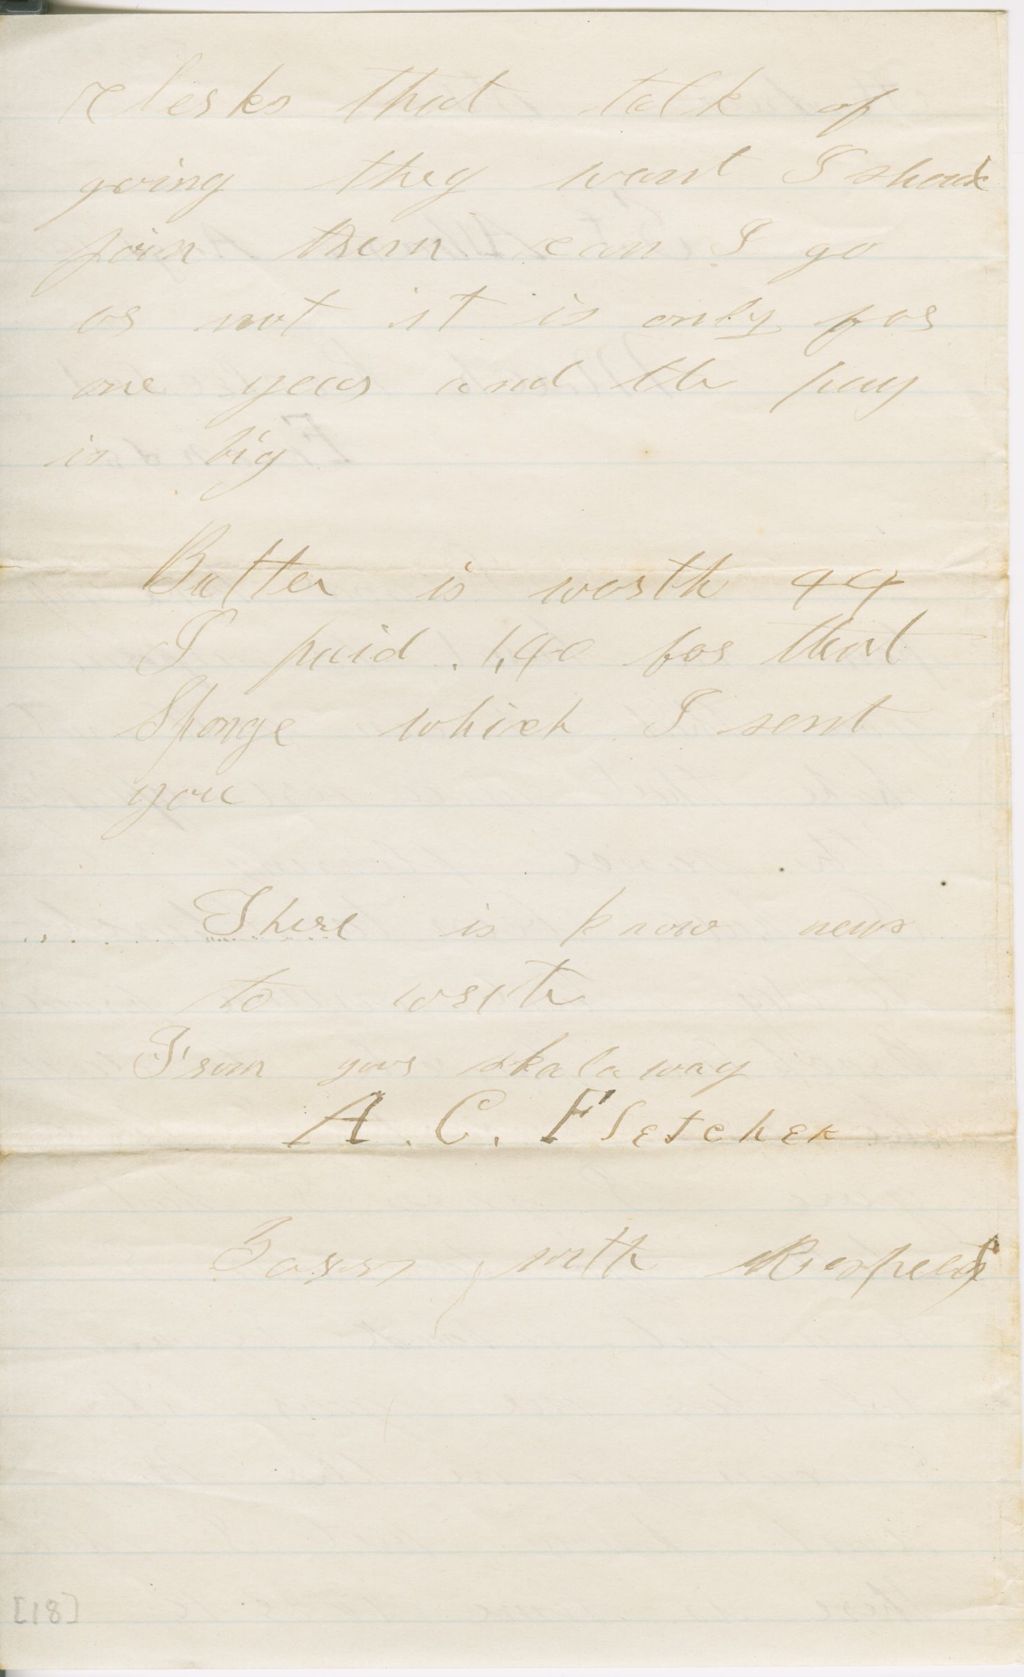 clerks that talk of
going they want I shoud
join them can I go
or not it is only for
one year and the pay
is big
Butter is worth 44
I paid .1,40 for that
Sponge which I sent
you
There is know news
to write
From your skalaway
A. C. Fletcher
Yours with Respects
[18]